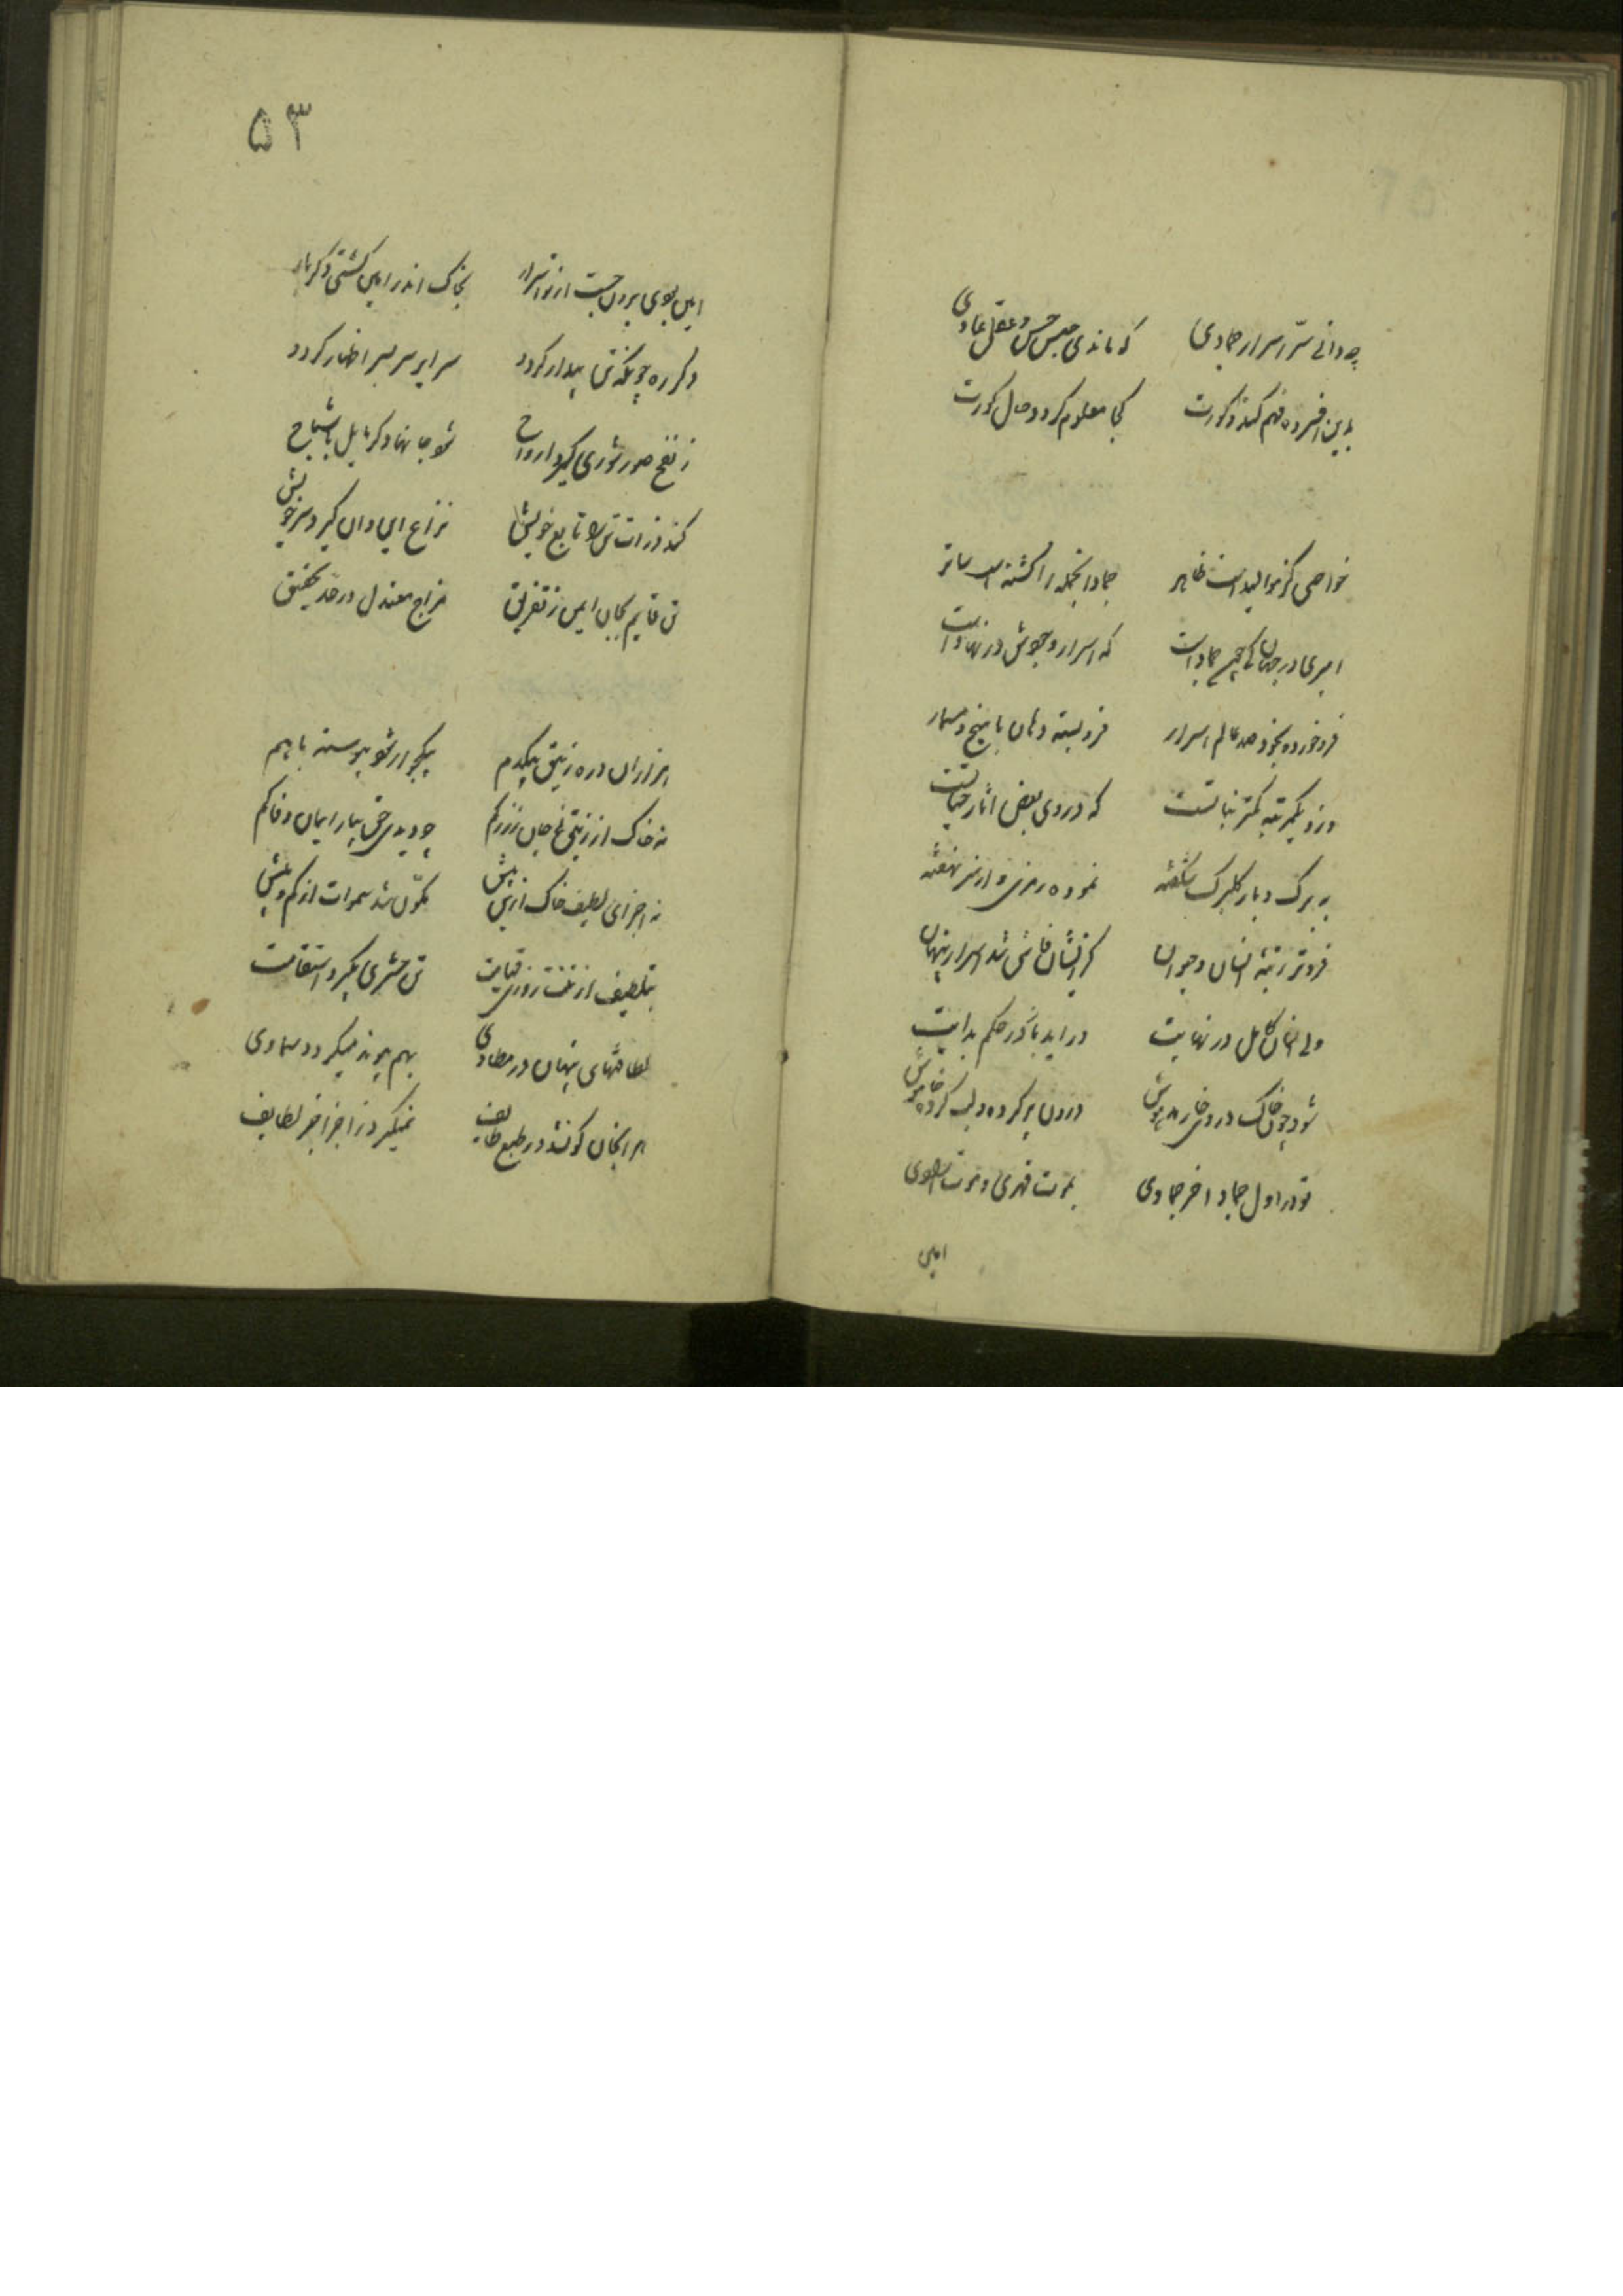 چه دانی سرّ اسرار جمادی که ماندی حبس حس و عقل عادی
بدین افسرده فهم کند و کورت کجا معلوم کردد حال کورت
خواصی کز موالید است ظاهر جماد آنجمله را کشته است ساتر
امیری در جهان کی چون جماد است که اسرار وجودش در نهاد است
فرو خورده بخود صد عالم اسرار فرو بسته دهان با میخ و مسمار
وزو یکمرتبه کمتر نباتست که در وی بعض اثار حیاتست
به برک و بار کلبرک شکفته نموده رمزی و از سر نهفته
فروتر رتبهٔ انسان و حیوان کز ایشان فاش شد اسرار پنهان
ولی انسان کامل در نهایت در اید باز در حکم بدایت
شود چون خاک در وی خار مدهوش درون پر کرده و لب کرده خاموش
تو در اول جماد اخر جمادی بموت قهری و موت ارادی
امین
۵۳
امین بودی برون جست از تو اسرار بخاک اندر امین کشتی دکر بار
دکر ره چونکه تن بیدار کردد سرایر سر بسر اظهار کردد
ز نفخ صور شوری کیرد ارواح شود جانها دکر مایل باشباح
کند ذرات تن را تابع خویش نزاع این و ان کیرد سر خویش
تن قایم بجان ایمن ز تفریق مزاج معتدل در حد تحقیق
هزاران ذره زیبق بیکدم بیکجو ارشود پیوسته باهم
نه خاک از زیبق نه جان زر کم چو دیدی حق بیار ایمان و فاکم
نه اجزای لطیف خاک ازین پیش مکوّن شد سموات از کم و بیش
بتلطیف از تفت روز قیامت تن حشری بکیرد استقامت
لطافتهای پنهان در مطاوی بهم پیوند میکردد سماوی
هر انجان کو نشد در طبع طایف نمیکیرد ز اجزا جز لطایف